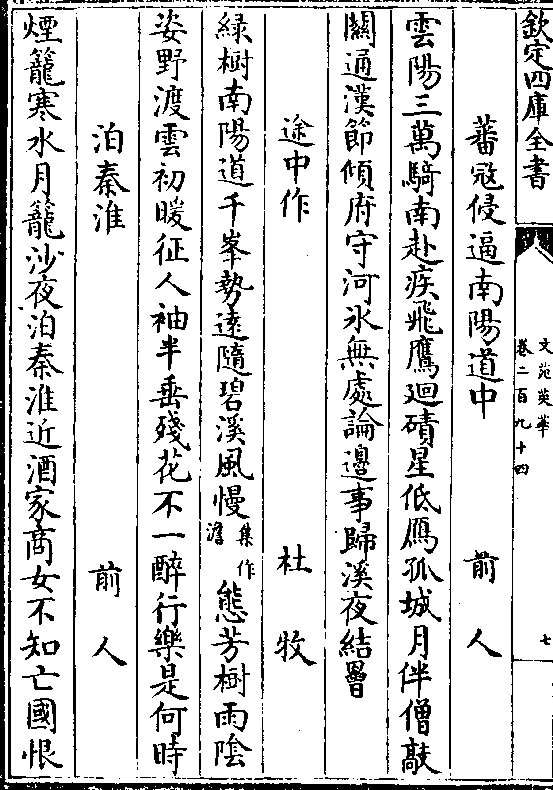 欽定四庫全書
文苑英華
卷二百九十四
七
蕃寇侵逼南陽道中 前人
雲陽三萬騎南赴疾飛鷹迴磧星低鴈孤城月伴僧敲
關通漢節傾府守河氷無處論邊事歸溪夜結罾
途中作 杜牧
緑樹南陽道千峯勢逺隨碧溪風慢集作澹態芳樹雨陰
姿野渡雲初暖征人袖半垂殘花不一醉行樂是何時
泊秦淮 前人
煙籠寒水月籠沙夜泊秦淮近酒家商女不知亡國恨